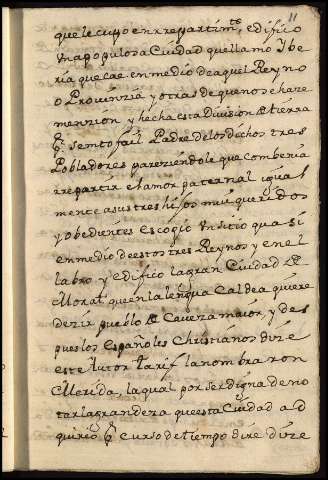 11
que le cupo en rrepartimto, y edifico
Vna populosa Ciudad que llamo Ybe
ria que cae en medio de aquel Reyno
o Prouinzia y otras de que no se haze
menzion y hecha esta Division de tierra
pr Sem tofail Padre de los dichos tres
Pobladores pareziendole que combenia
rrepartir el amor paternal igual
mente a sus tres hijos mui queridos
y obedientes Escogio Vn sitio qua si
en medio de estos tres Reynos y en el
labro y edifico la gran Ciudad de
Morat que en la lengua Caldea quiere
dezir pueblo de Caveza maior, y des
pues los Españoles Christianos dize
este Autor tarif la nombraron
Merida, la qual por ser digna de no
tar la grandeza que esta Ciudad ad
quirio pr curso de tiempo dire dize